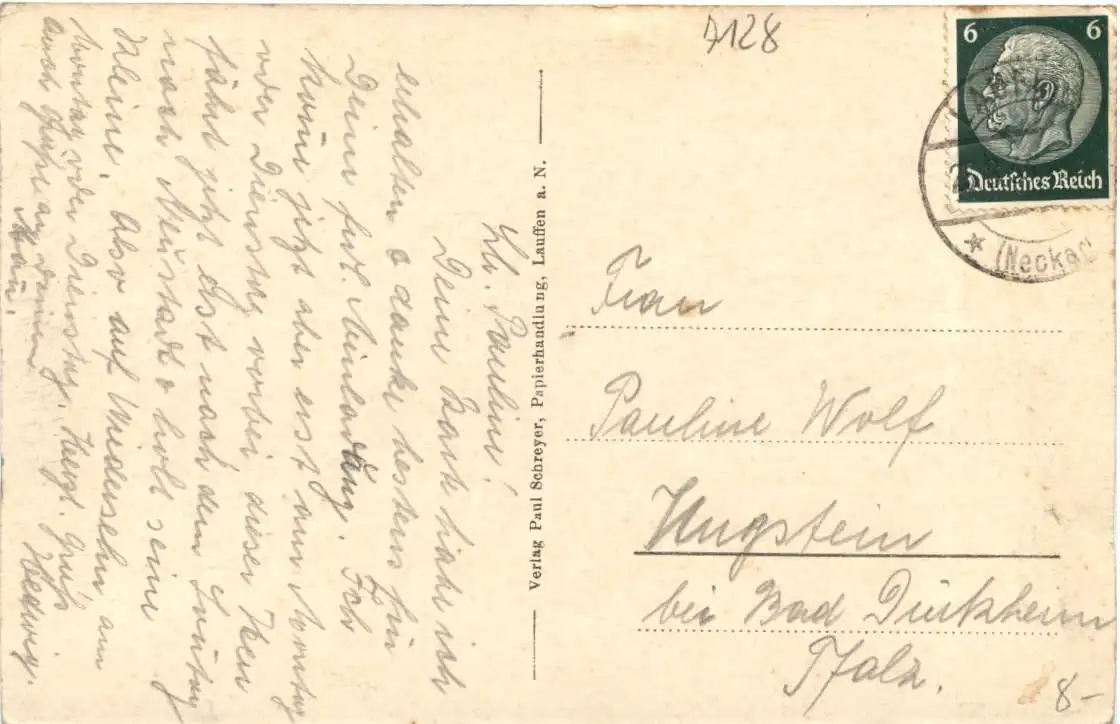 Lb. Pauline!
Deine Karte habe ich
erhalten & danke bestens für
Deine frdl. Einladung. Ich
komme jetzt aber erst am Montag
oder Dienstag vorbei, dieser Herr
fährt jetzt erst nach dem Sonntag
nach Neustadt & holt seine
Kleine. Also auf Wiedersehn am
Montag oder Dienstag. Herzl. Grüße
auch Grüße an deinen Hedwig.
Mann.
Verlag Paul Schreyer, Papierhandlung, Lauffen a. N.
7128
6 6
Deutsches Reich
(Neckar)
Frau
Pauline Wolf
Ungstein
bei Bad Dürkheim
Pfalz.
8-